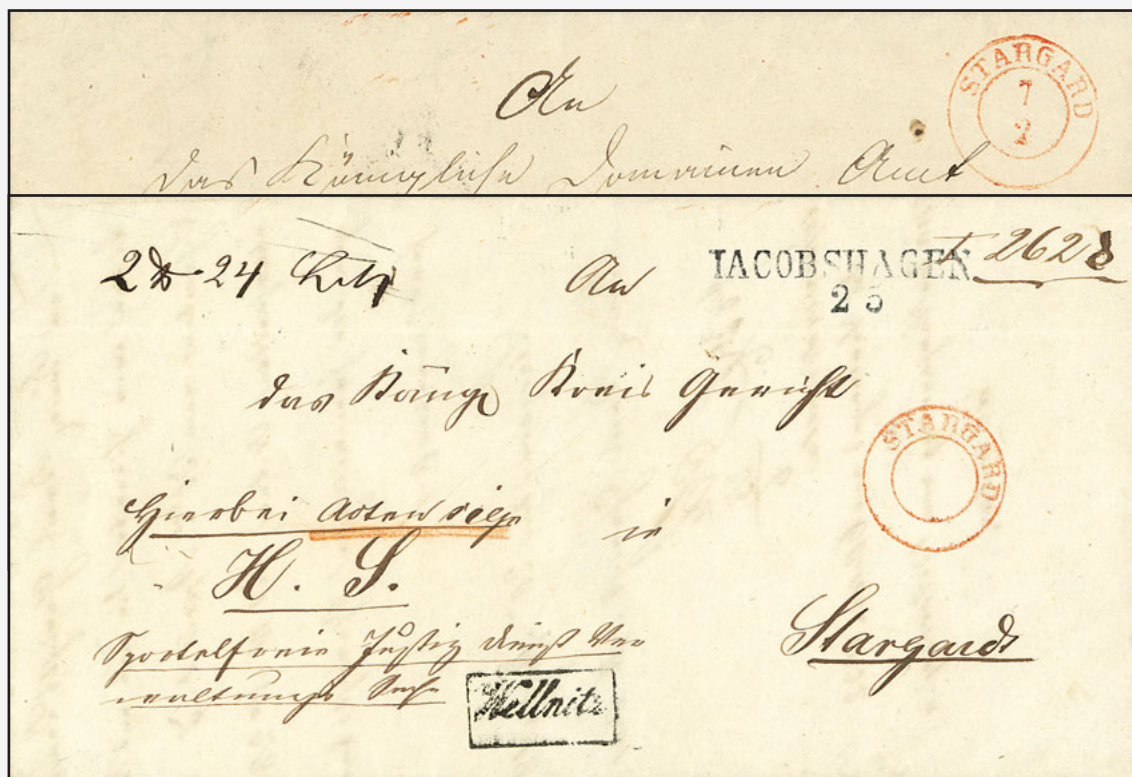 An
STARGARD
7
2
das Königliche Domainen Amt
2 24 Lth
An
IACOBSHAGEN
2 5
2628
das Köngl Kreis Gericht
STARGARD
Hierbei Acten
in
H. S.
Stargardt
Sportelfreie Justiz Dienst Ver
waltungs Sache
Wellnitz